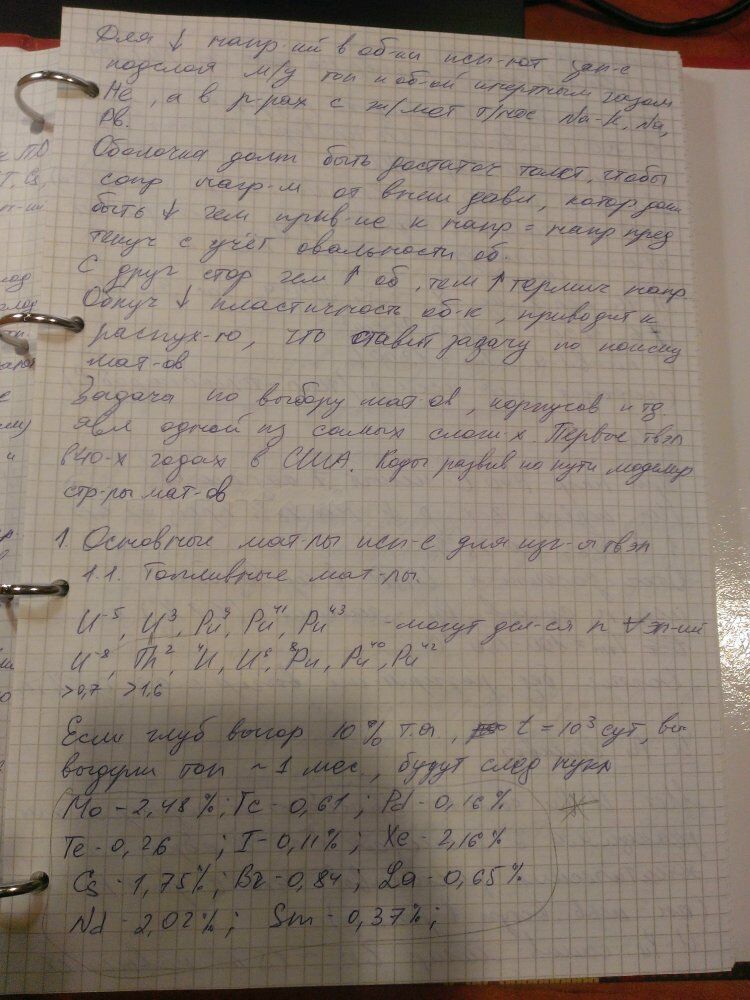 Для ↓ напр-ий в об-ки исп-ют зап-е
подслоя м/у топ и об-ой инертным газом
He, а в р-рах с ж/мет т/нос Na-K, Na,
Pb.
Оболочка долж быть достаточ толст, чтобы
сопр нагр-м от внеш давл, котор долж
быть ↓ чем прив-ие к напр = напр пред
текуч с учёт овальности об.
С друг стор чем ↑ об, тем ↑ термич напр
Облуч ↓ пластичность об-к, приводит к
распух-ю, что ставит задачу по поиску
мат-ов
Задача по выбору мат-ов, корпусов и тд
явл одной из самых слож-х. Первые твэл
в 40-х годах в США. Коды развив по пути моделир
стр-ры мат-ов
1. Основные мат-лы исп-е для изг-я твэл
1.1. Топливные мат-лы.
U⁻⁵, U³, Pu⁹, Pu⁴¹, Pu⁴³ - могут дел-ся n ∀ эн-ий
U⁻⁸, Th², ⁴U, U⁶, ⁸Pu, Pu⁴⁰, Pu⁴²
>0,7 >1,6
Если глуб выгор 10% т.а, t = 10³ сут,
выдерж топ ~ 1 мес, будут след нукл
Mo - 2,48%; Tc - 0,61; Pd - 0,16%
Te - 0,26 ; I - 0,11%; Xe - 2,16%
Cs - 1,75%; Ba - 0,84; La - 0,65%
Nd - 2,02%; Sm - 0,37%;